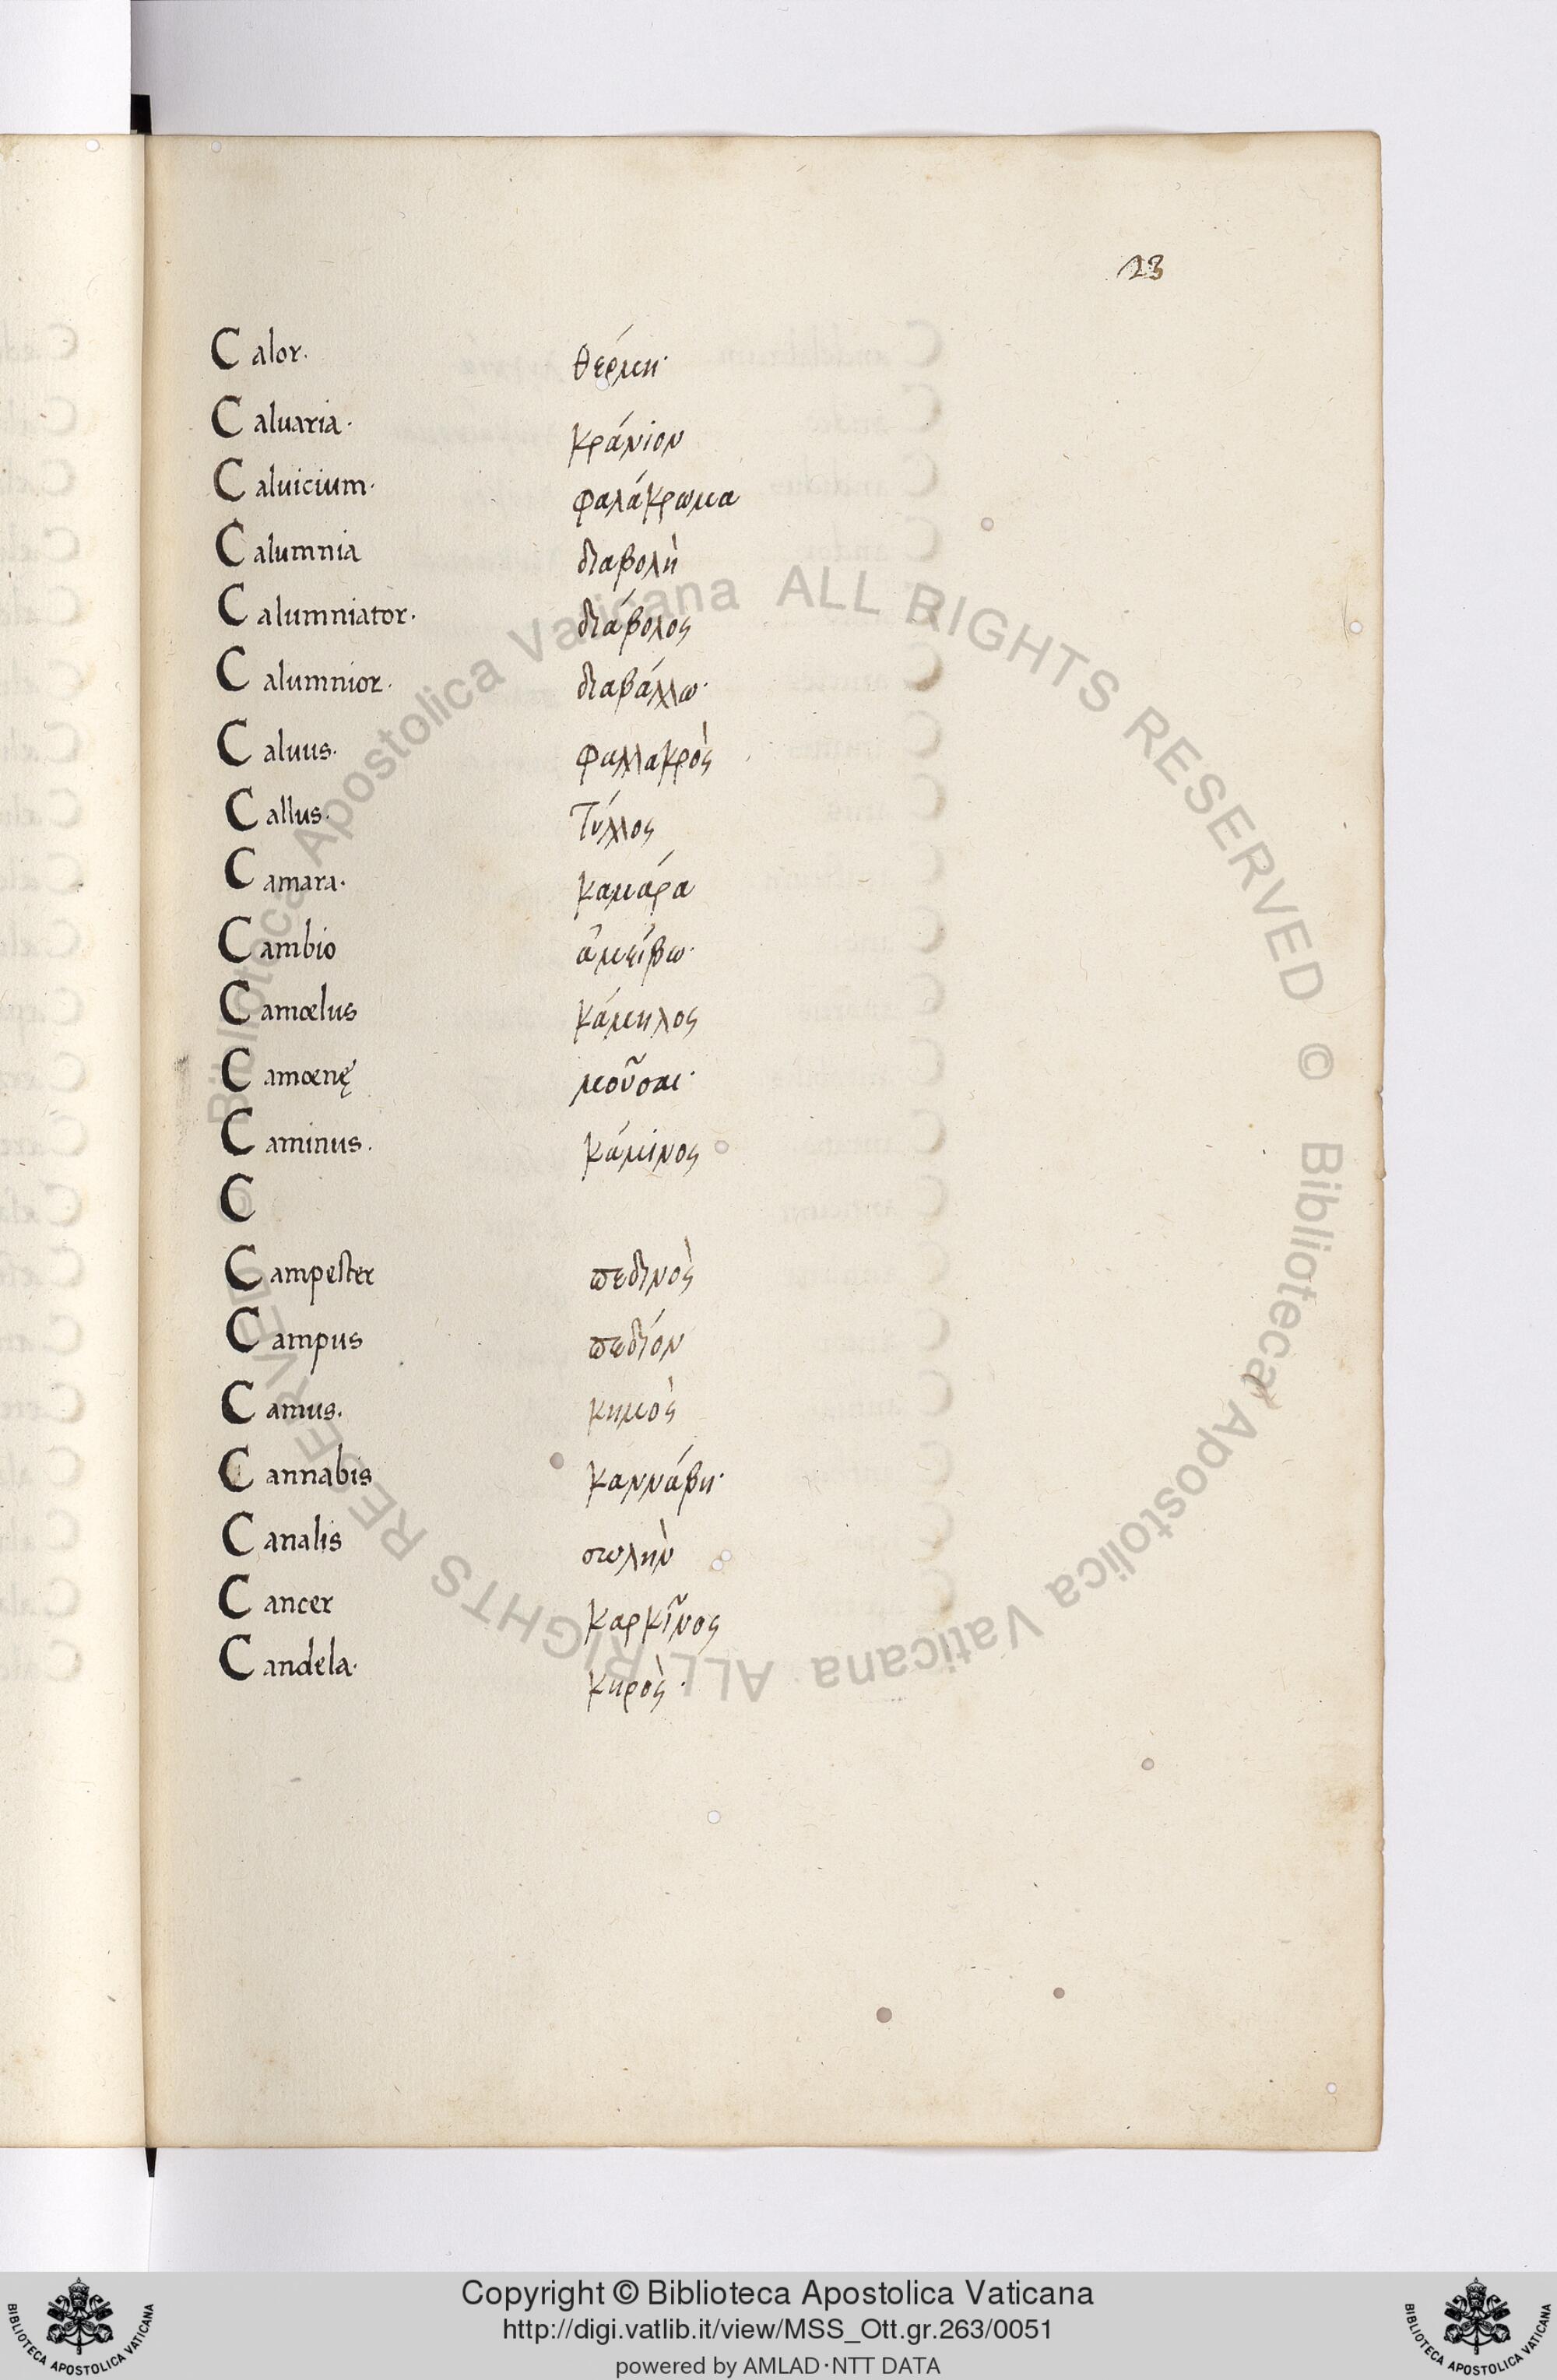 23
Calor· θέρμη·
Caluaria· κράνιον
Caluicium· φαλάκρωμα
Calumnia διαβολὴ
Calumniator· διάβολος
Calumnior· διαβάλλω·
Caluus· φαλλακρὸς
Callus· τύλλος
Camara· καμάρα
Cambio ἀμείβω·
Camœlus κάμηλος
Camœnę μοῦσαι·
Caminus. κάμινος
C
Campester πεδινὸς
Campus πεδίον
Camus. κημὸς
Cannabis καννάβη·
Canalis σωλὴν
Cancer καρκῖνος
Candela· κηρὸς·
© Biblioteca Apostolica Vaticana ALL RIGHTS RESERVED © Biblioteca Apostolica Vaticana ALL RIGHTS RESERVED
Copyright © Biblioteca Apostolica Vaticana
http://digi.vatlib.it/view/MSS_Ott.gr.263/0051
powered by AMLAD·NTT DATA
BIBLIOTECA APOSTOLICA VATICANA
BIBLIOTECA APOSTOLICA VATICANA